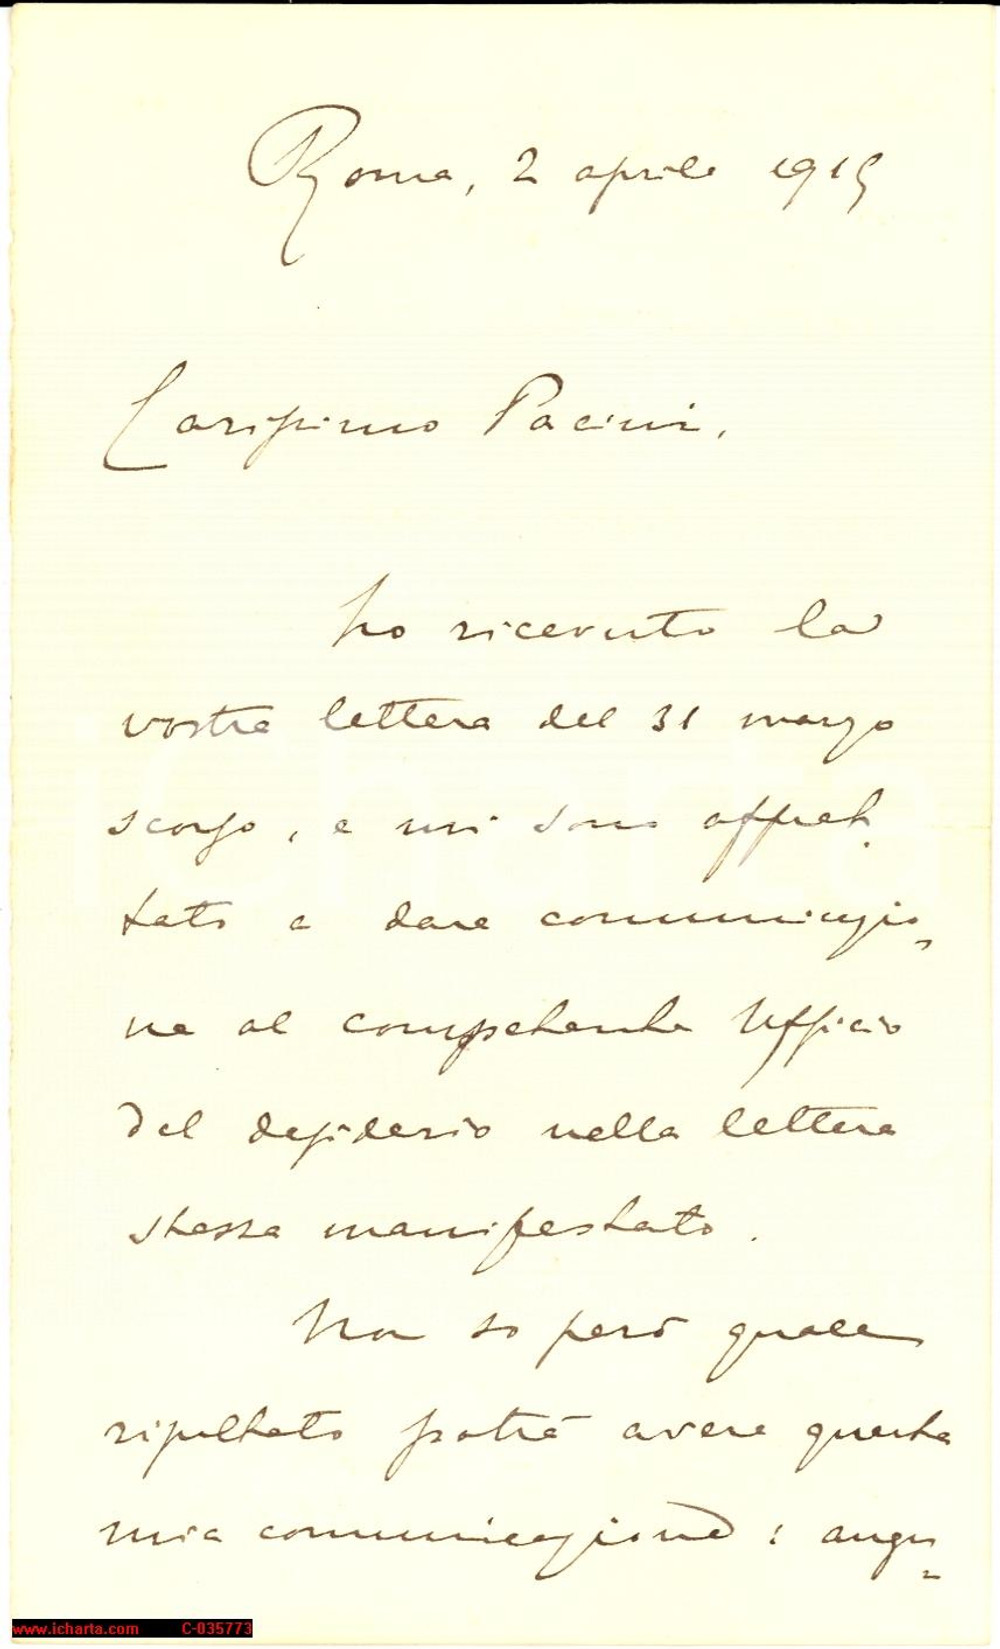 Roma, 2 aprile 1915
Carissimo Pacini,
ho ricevuto la
vostra lettera del 31 marzo
scorso, e mi sono affret-
tato a dare comunicazio-
ne al competente Ufficio
del desiderio nella lettera
stessa manifestato.
Non so però quale
risultato potrà avere questa
mia comunicazione: augu-
iCharta
www.icharta.com C-035773